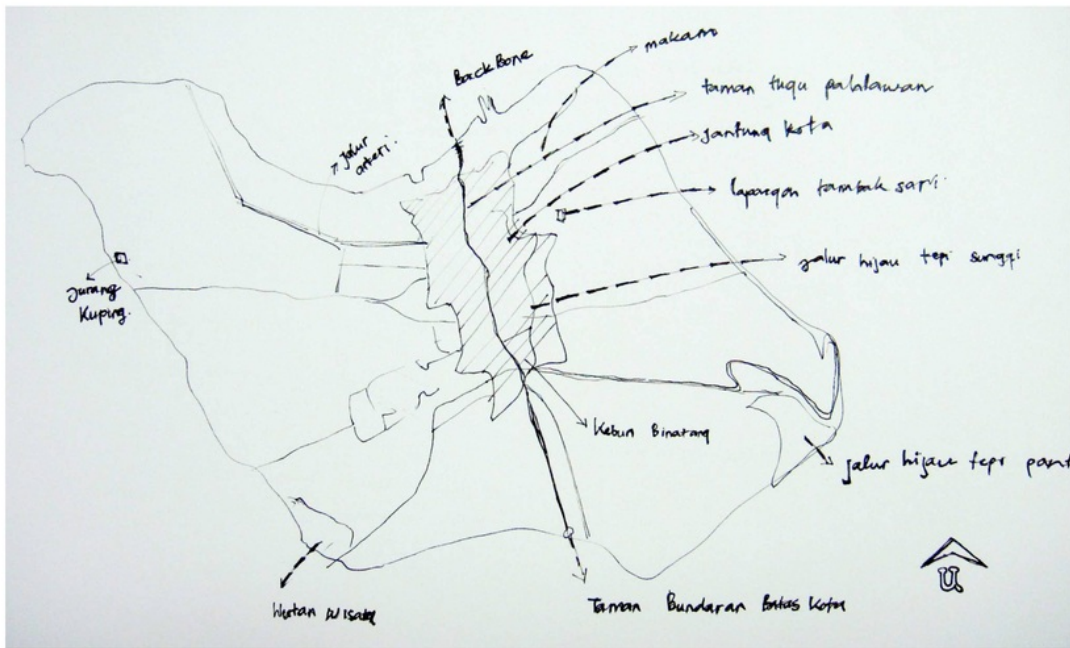 BackBone
makam
taman tugu pahlawan
jantung kota
jalur
arteri.
lapangan tambak sari
jalur hijau tepi sungai
Jurang
Kuping.
Kebun Binatang
jalur hijau tepi pant
Hutan Wisata
Taman Bundaran Batas Kota
U